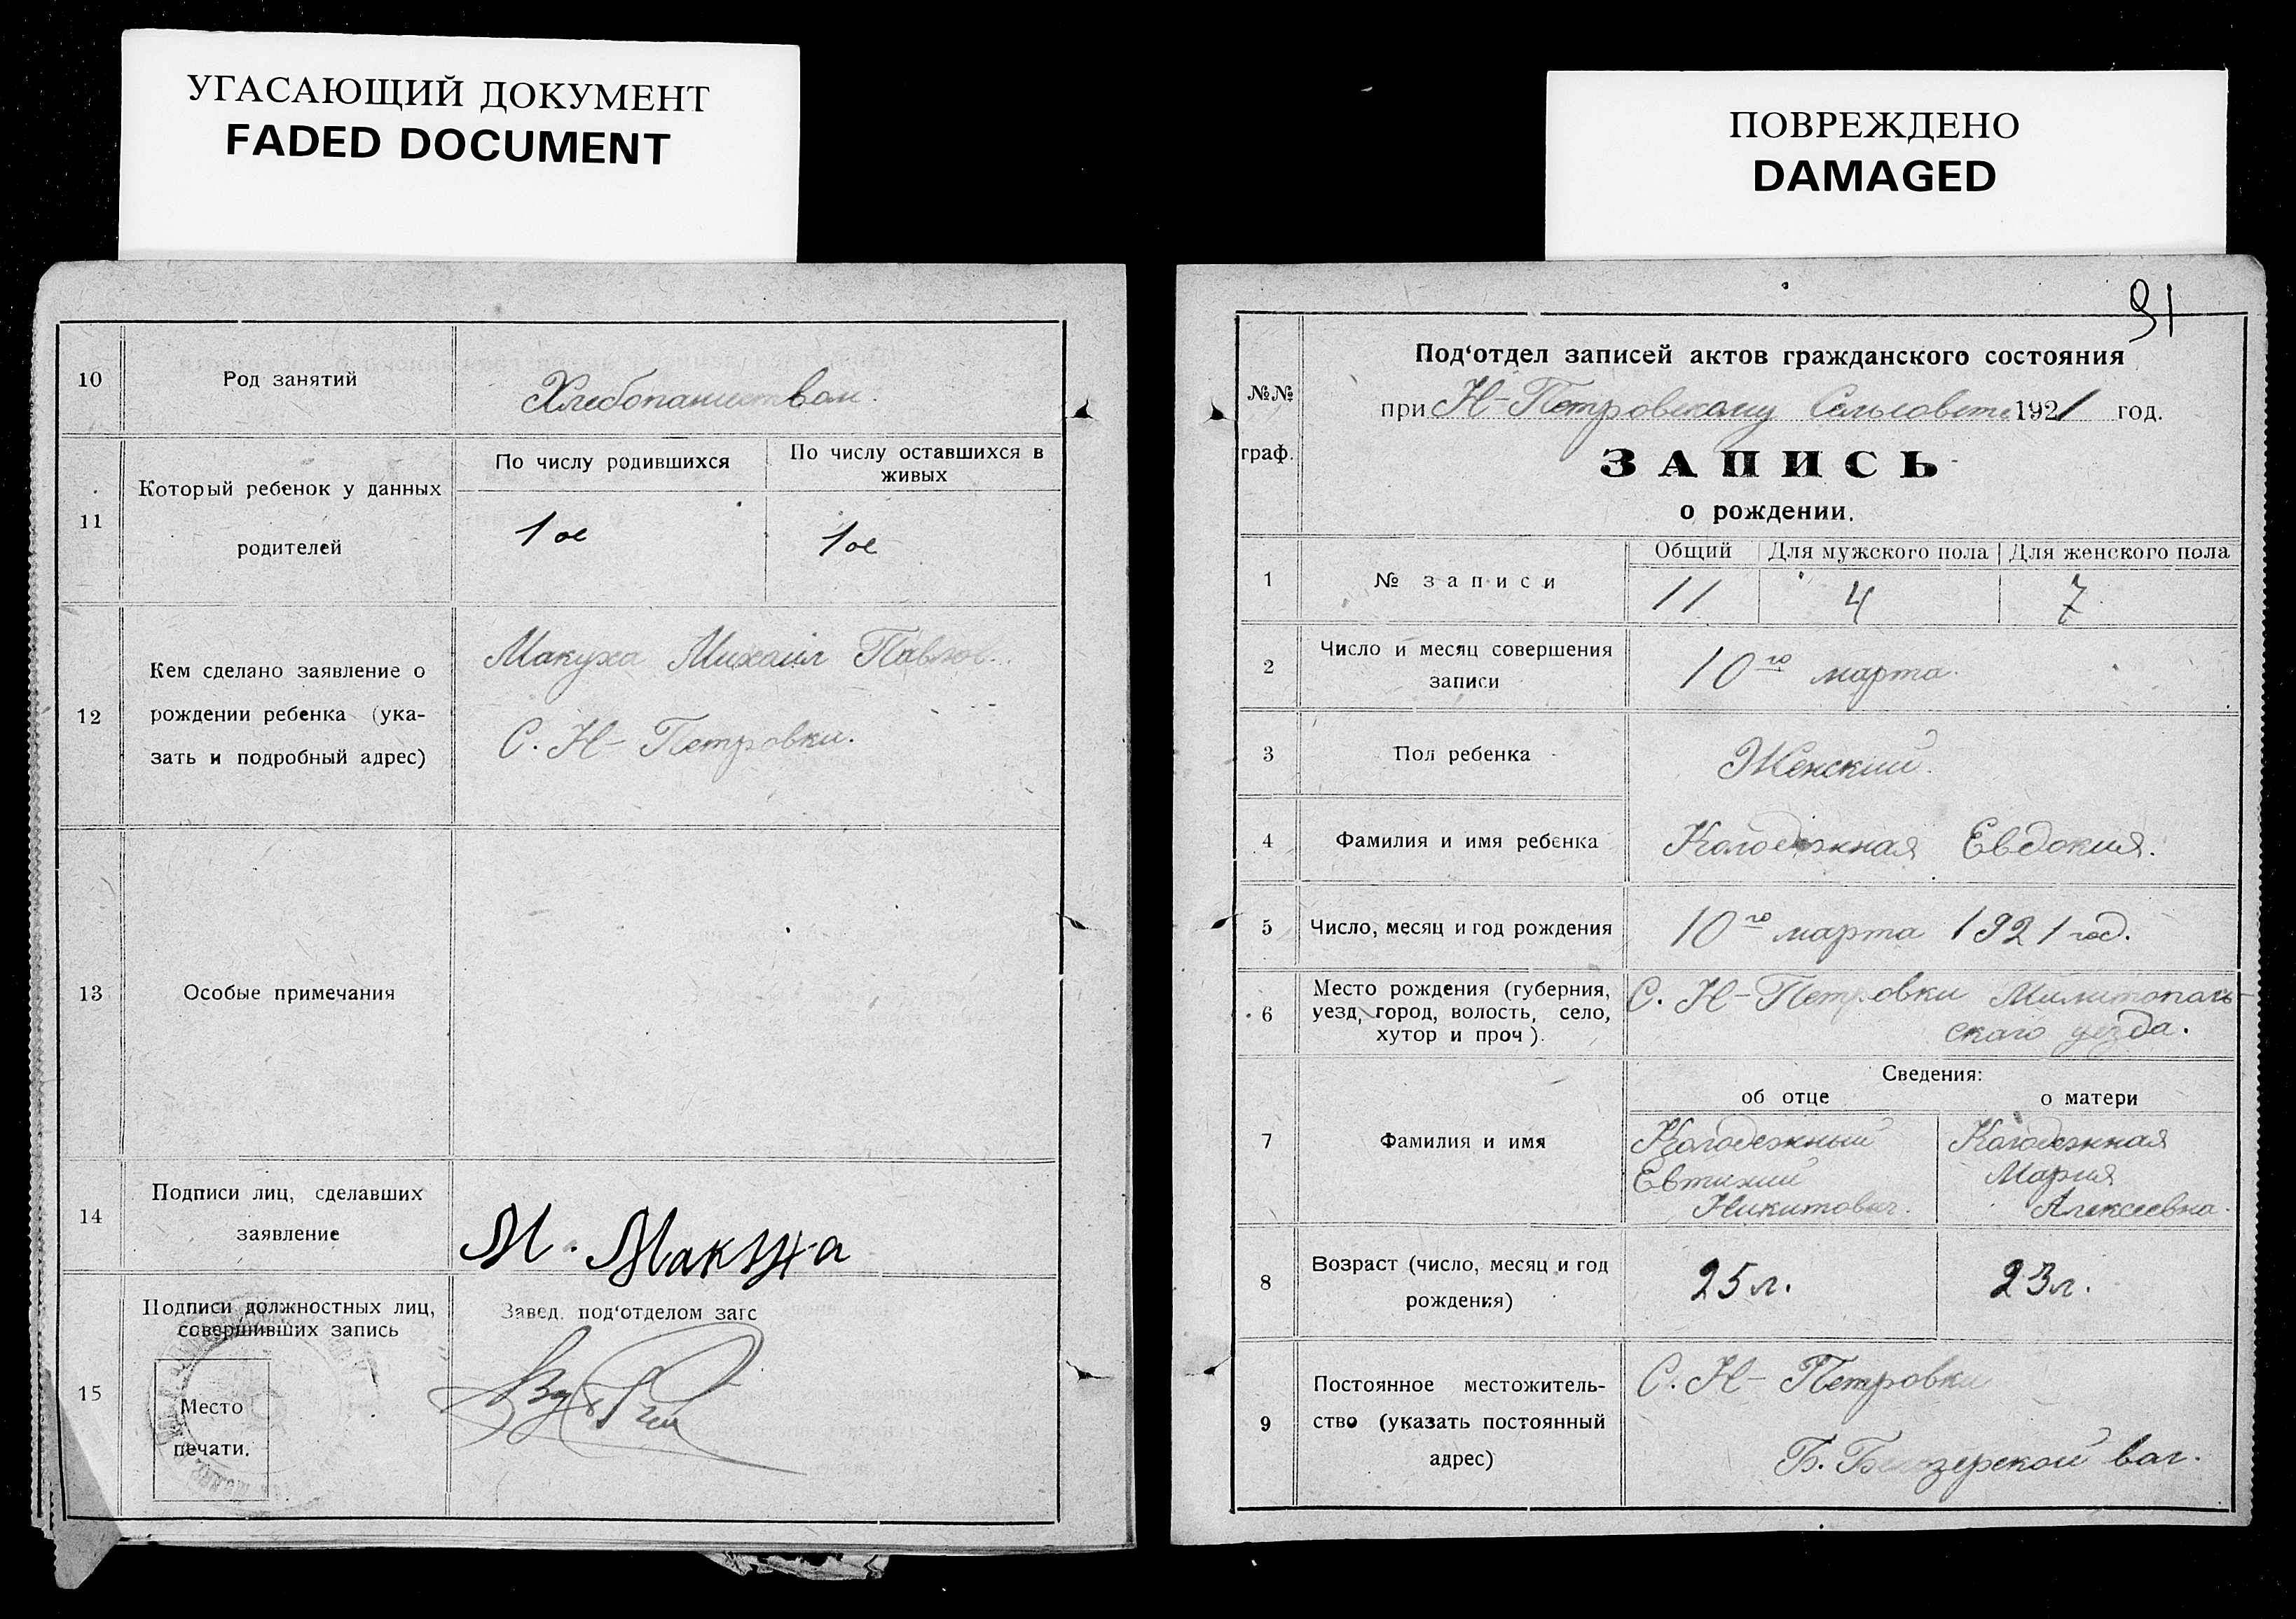 УГАСАЮЩИЙ ДОКУМЕНТ
FADED DOCUMENT
10
Род занятий
Хлебопашеством.
11
Который ребенок у данных
родителей
По числу родившихся
По числу оставшихся в
живых
1ое
1ое
12
Кем сделано заявление о
рождении ребенка (ука-
зать и подробный адрес)
Макуха Михаил Павлов.
С. Н-Петровки.
13
Особые примечания
14
Подписи лиц, сделавших
заявление
М. Макуха
15
Подписи должностных лиц,
совершивших запись
Место
печати.
Завед. под‘отделом загс
ПОВРЕЖДЕНО
DAMAGED
91
№№
граф.
Под‘отдел записей актов гражданского состояния
при Н-Петровскому Сельсовете 1921 год.
ЗАПИСЬ
о рождении.
1
№ записи
Общий
Для мужского пола
Для женского пола
11
4
7
2
Число и месяц совершения
записи
10го марта.
3
Пол ребенка
Женский.
4
Фамилия и имя ребенка
Колодежная Евдокия.
5
Число, месяц и год рождения
10го марта 1921 год.
6
Место рождения (губерния,
уезд, город, волость, село,
хутор и проч).
С. Н-Петровки Милитополь-
скаго уезда.
Сведения:
об отце
о матери
7
Фамилия и имя
Колодежный
Евтихий
Никитович.
Колодежная
Мария
Алексеевна.
8
Возраст (число, месяц и год
рождения)
25л.
23л.
9
Постоянное местожитель-
ство (указать постоянный
адрес)
С. Н-Петровки
Б. Белозерской вол.